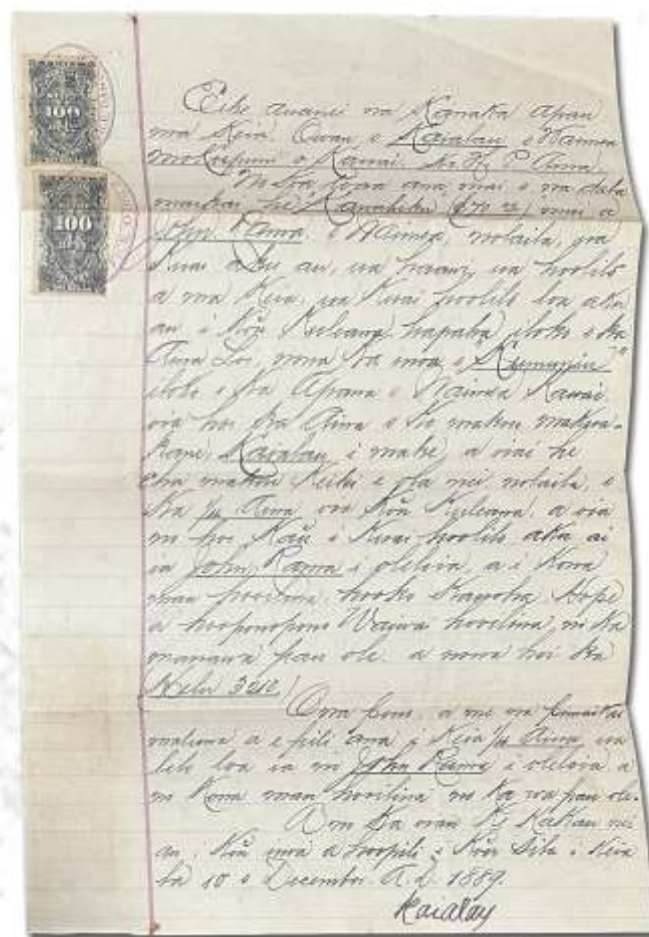 100
100
E ike auanei na Kanaka apau
ma Keia. Owau o Kaialau o Waimea
Mokupuni o Kauai. Ko H. P. Aina.
No ka loaa ana mai o na dala
maikai, he Kanahiku $70 mai a
John Kama o Waimea, nolaila, ua
Kuai aku au, ua haawi, ua hoolilo
a ma Keia, ua Kuai hoolilo loa aku
au i Ko'u Kuleana hapaha iloko o ka
Aina Loi, nona ka inoa o
iloko o ka Apana o Waimea Kauai.
oia hoi ka Aina o ko makou makua-
Kane, Kaialau i make, a oiai he
Eha makou Keiki e ola nei nolaila, o
Ka 1/4 Aina oia Ko'u Kuleana, a oia
no hoi Ka'u i Kuai hoolilo aku ai
ia John Kama i oleloia, a i Kona
mau hooilina, hooko Kauoha, Hope
a hooponopono Waiwai hooilina no Ka
manawa pau ole. a nona hoi ka
Helu 3212
Ona pono, a me na pomaikai
malima a e pili ana i Keia 1/4 Aina ua
lilo loa ia no John Kama i oleloia a
no Kona mau hooilina no Ka wa pau ole.
A no ka oiaio Ke Kakau nei
au i Ko'u inoa a hoopili i Ko'u Sila i Keia
la 10 o Decemba A.D. 1889.
Kaialau